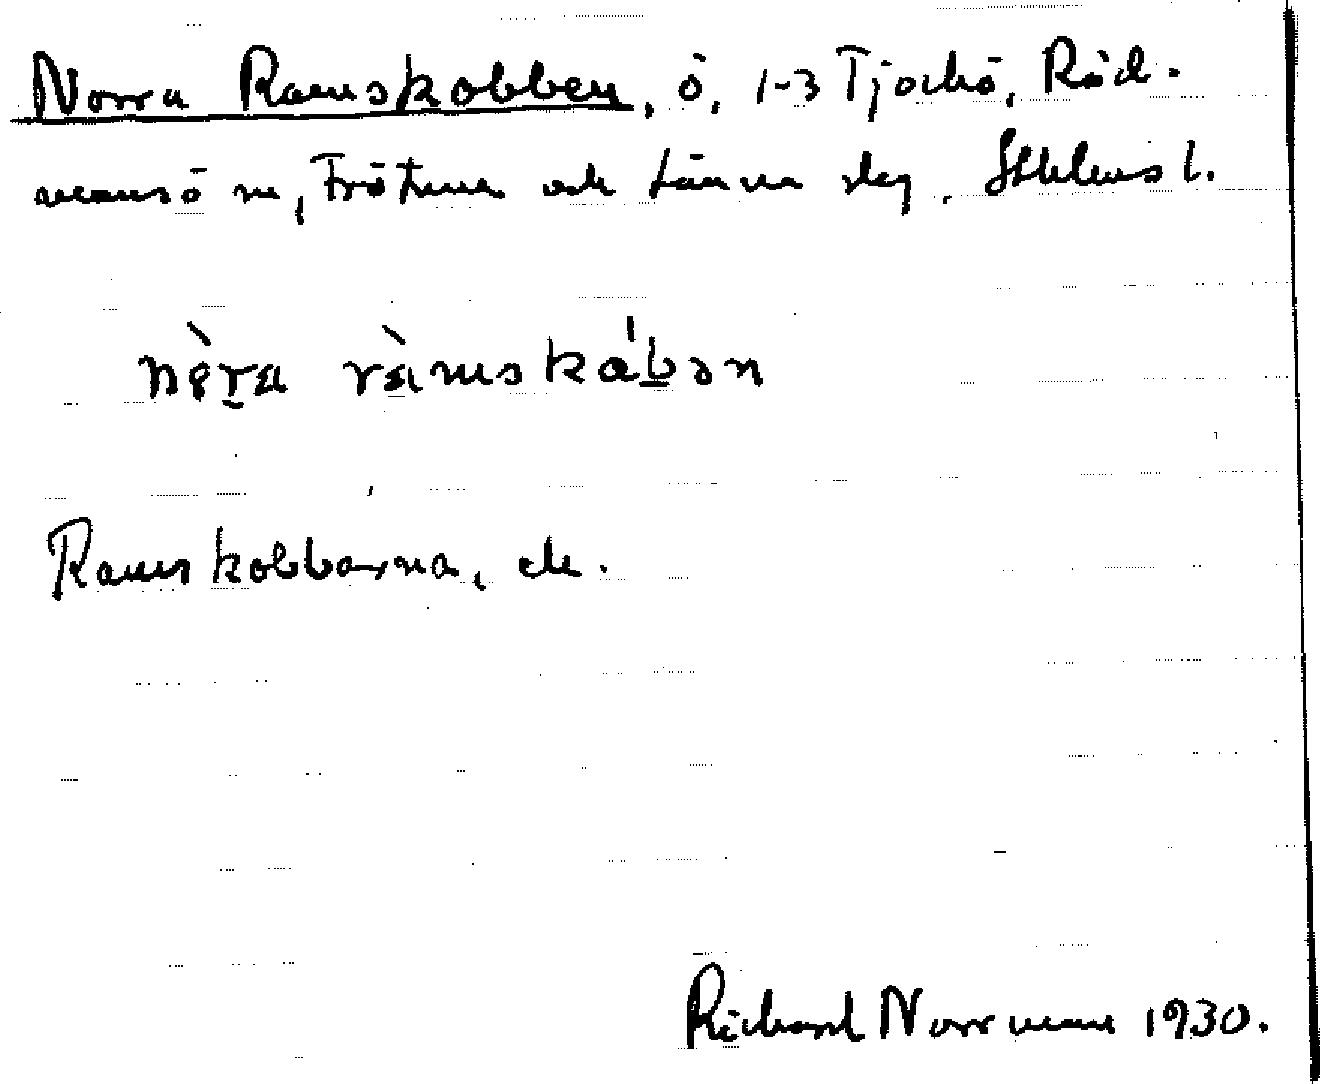 Norra Ramskobben, ö, 1-3 Tjockö, Råd-
mansö sn, Frötuna och Länna skg. Sthlms l.
nɷ̀ra ràmskábən
Ramskobbarna, ek.
Richard Norrman 1930.